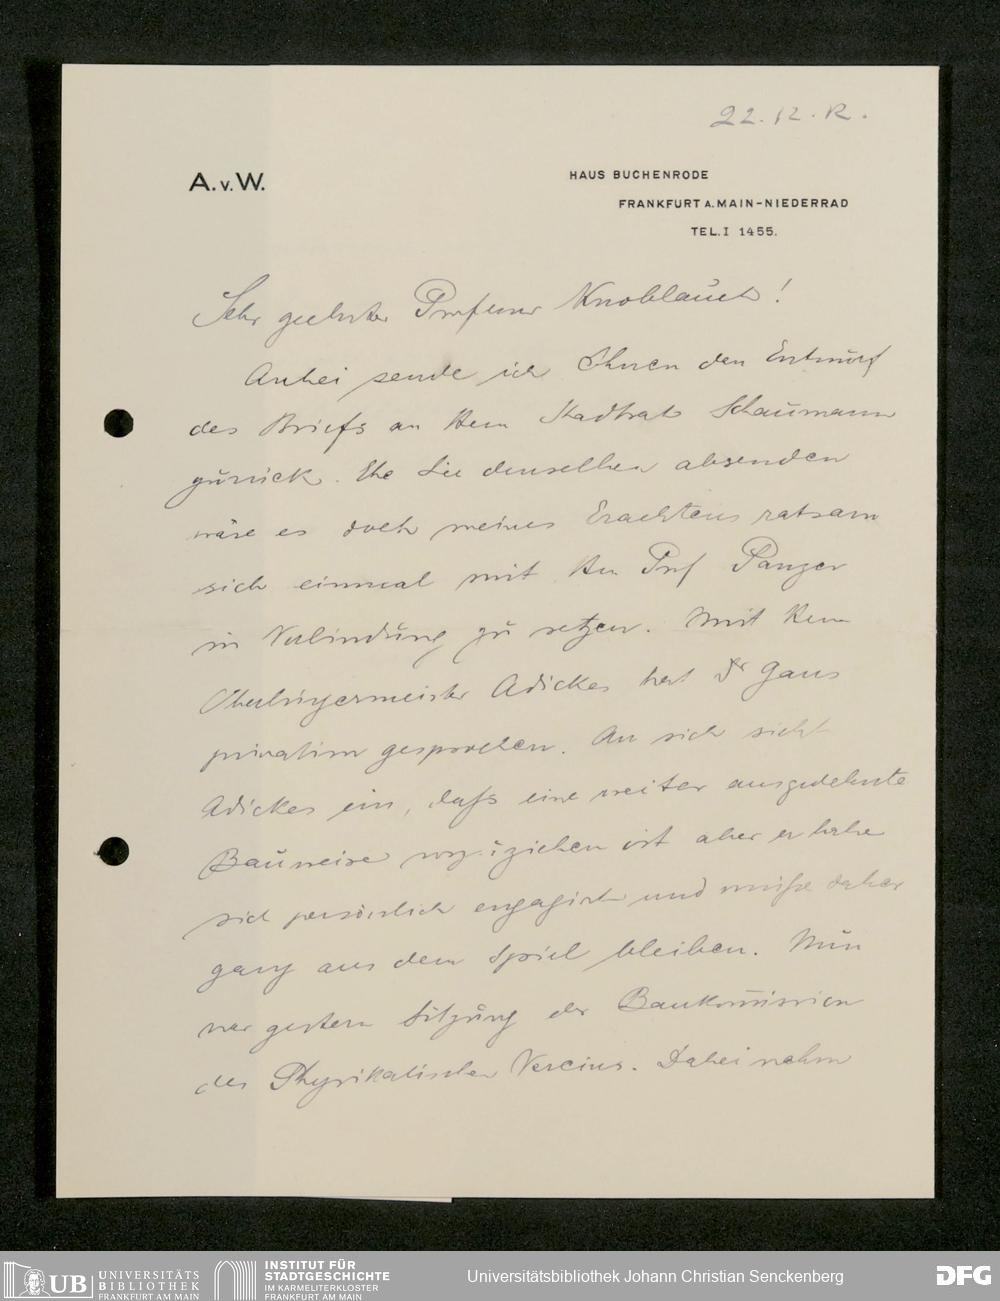 22.12.12.
A.v.W.
HAUS BUCHENRODE
FRANKFURT A. MAIN-NIEDERRAD
TEL. I 1455.
Sehr geehrter Professor Knoblauch!
Anbei sende ich Ihnen den Entwurf
des Briefs an Herrn Stadtrat Schaumann
zurück. Ehe Sie denselben absenden
wäre es doch meines Erachtens ratsam
sich einmal mit Hrn Prof Panzer
in Verbindung zu setzen. Mit Herrn
Oberbürgermeister Adickes hat Dr Gans
privatim gesprochen. An sich sieht
Adickes ein, daß eine weiter ausgedehnte
Bauweise vorzuziehen ist aber er habe
sich persönlich engagirt und müsse daher
ganz aus dem Spiel bleiben. Nun
war gestern Sitzung der Baukommission
des Physikalischen Vereins. Dabei nahm
UB UNIVERSITÄTS
BIBLIOTHEK
FRANKFURT AM MAIN
INSTITUT FÜR
STADTGESCHICHTE
IM KARMELITERKLOSTER
FRANKFURT AM MAIN
Universitätsbibliothek Johann Christian Senckenberg
DFG